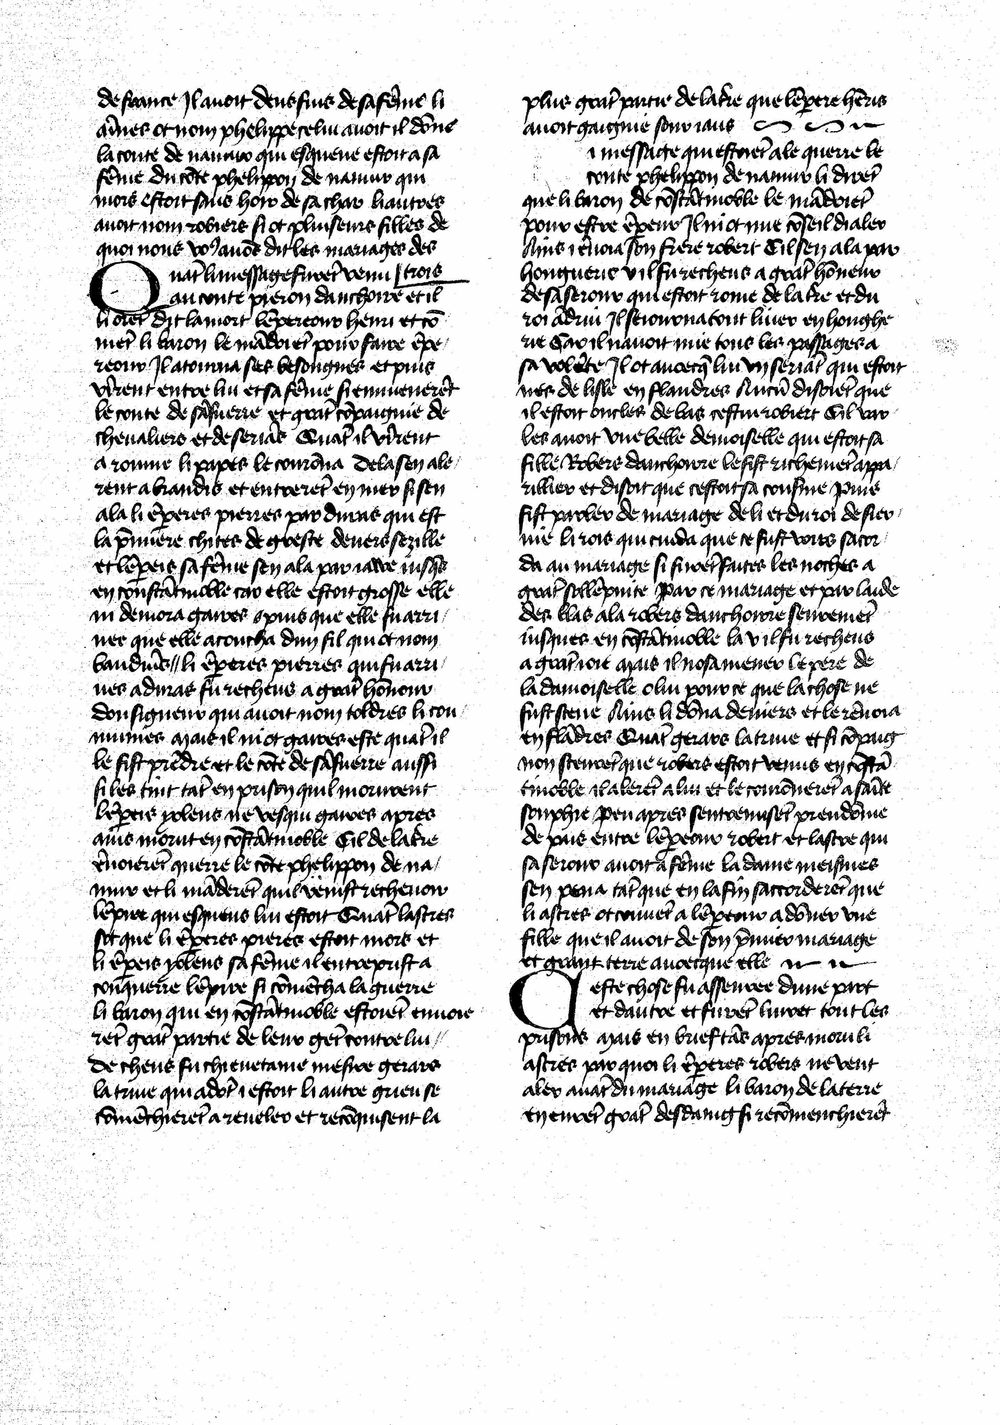 de france Il auoit deus fius de sa fême li
aînes ot nom phelippe celui auoit il dône
la conte de namur qui esqueue estoit a sa
fême du côte phelippon de namur qui
mors estoit sans hoir de sa char li autres
auoit nom robiers si ot pluiseurs filles de
quoi nous vo9 auôs dit les mariages des
Quât li message furêt venu trois
au conte pieron dauchoirre et il
li orêt dit la mort lêpereour henri et cô
mêt li baron le mâdoiêt pour faire êpe
reour Il atourna ses besongnes et puis
vîrent entre lui et sa fême si enmenerêt
le conte de sâsuerre et grât côpaignie de
cheualiers et de seriâs Quât il vîrent
a romme li papes le courôna De la sen ale
rent a brandis et entrerêt en mer si sen
ala li êperes pierres par duras qui est
la pmiere chites de gresse deuers sezille
et lêpeis sa fême sen ala par iaue iusqs
en constâtinoble car elle estoit grosse elle
ni demora gaires puis que elle fu arri
uee que elle acoucha dun fil qui ot nom
bauduîs li êperes pierres qui fu arri
ues a duras fu recheus a grât hônour
dou signeur qui auoit nom toldres li cou
mines Mais il ni ot gaires este quât il
le fist prêdre et le côte de sâsuerre aussi
si les tint tât en prison quil morurent
Lêpeis yolens ne vesqui gaires apres
ains morut en côstâtinoble Cil de la tre
êuoierêt querre le côte phelippon de na
mur et li mâderêt quil venist recheuoir
lêpire qui esqueus lui estoit Quât lastres
sot que li êperes pieres estoit mors et
li êpeis yolens sa fême il entreprist a
conquerre lêpire si comêcha la guerre
li baron qui en côstâtinoble estoiêt enuoie
rêt grât partie de leur gêt contre lui
De cheus fu chieuetaine mesire gerars
la truie qui adôt i estoit li autre grieu se
cômêchierêt a reueler et recôquisent la
plus grât partie de la tre que lêpere hêris
auoit gaignie sour iaus
i message qui estoiêt ale querre le
conte phelippon de namur li dirêt
que li baron de côstâtinoble le mâdoiêt
pour estre êpereur Il ni ot mie côseil daler
Ains i êuoia son frere robert Cil sen ala par
honguerie v il fu recheus a grât hôneur
de sa serour qui estoit roine de la tre et du
roi âdriu Il seiourna tout liuer en honghe
rie Car il nauoit mie tous les passages a
sa volête Il ot auecq lui vn seriât qui estoit
nes de lisle en flandres Aucû disoiêt que
il estoit oncles de bas cestui robert Cil var
les auoit vne belle demoiselle qui estoit sa
fille Robers dauchoirre le fist richemêt appa
rillier et disoit que cestoit sa cousine Puis
fist parler de mariage de li et du roi de ser
uie li rois qui cuida que ce fust voirs sacor
da au mariage si furêt faites les noches a
grât sollêpnite Par ce mariage et par laide
des blas ala robers dauchoirre seuremêt
iusques en côstâtinoble la v il fu recheus
a grât ioie Mais il nosa mener le pere de
la damoiselle o lui pour ce que la chose ne
fust sceue Ains li dôna deniers et le rêuoia
en flâdres Quât gerars la truie et si côpaig
non sceurêt que robers estoit venus en côstâ
tinoble il alerêt a lui et le courônerêt a saîte
souphie Peu apres sentremisêt preudôme
de pais entre lêpeour robert et lastre qui
sa serour auoit a fême la dame meismes
sen pena tât que en la fin saccorderêt que
li astres ot couuêt a lêpeour a dôner vne
fille que il auoit de son pmier mariage
et grant terre auecque elle
Ceste chose fu asseuree dune part
et dautre et furêt liuret tout les
prisons Mais en brief tâs apres moru li
astres par quoi li êperes robers ne vent
aler auât du mariage li baron de la terre
en eurêt grât desdaing si recômenchierêt